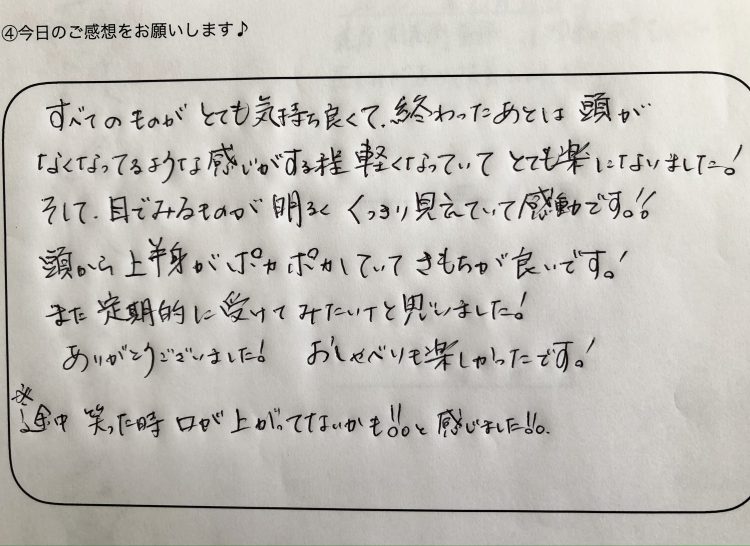 ④今日のご感想をお願いします♪
すべてのものが とても気持ち良くて、終わったあとは 頭が
なくなってるような感じがする程 軽くなっていて とても楽になりました!
そして、目でみるものが 明るく くっきり見えていて感動です!!
頭から上半身がポカポカしていて きもちが良いです!
また定期的に受けてみたいなと思いました!
ありがとうございました! おしゃべりも楽しかったです!
※途中 笑った時 口が上がってないかも!!と感じました!!